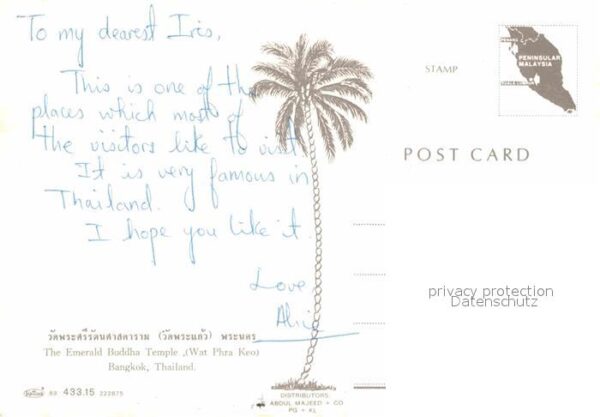 To my dearest Iris,
This is one of the
places which most of
the visitors like to visit.
It is very famous in
Thailand.
I hope you like it.
Love,
วัดพระศรีรัตนศาสดาราม (วัดพระแก้ว) พระนคร
The Emerald Buddha Temple ,(Wat Phra Keo)
Bangkok, Thailand.
433.15 222875
STAMP
PENINSULAR
MALAYSIA
POST CARD
privacy protection
Datenschutz
DISTRIBUTORS
ABDUL MAJEED + CO
PG + KL